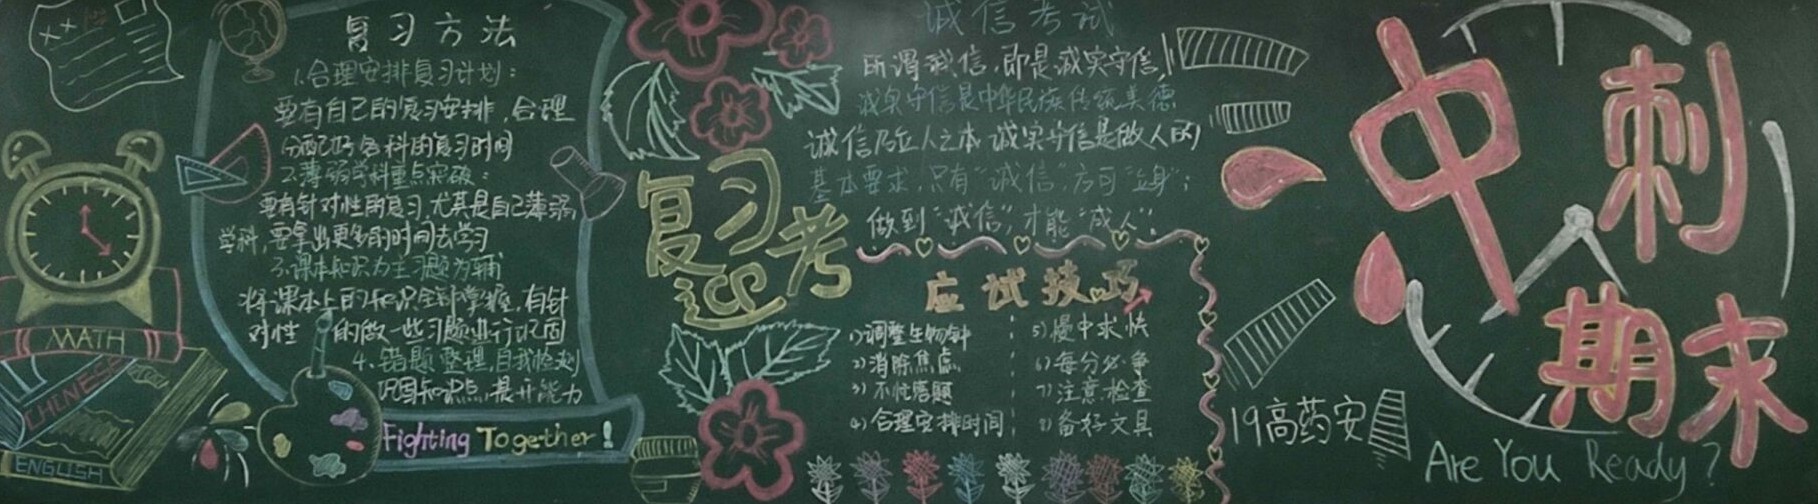 MATH
CHINESE
ENGLISH
复习方法
1.合理安排复习计划：
要有自己的复习安排，合理
分配好各科的复习时间
2.薄弱学科重点突破：
要有针对性的复习尤其是自己薄弱
学科，要拿出更多的时间去学习
3.课本知识为主习题为辅
将课本上的知识全部掌握，有针
对性的做一些习题进行巩固
4.错题整理，自我检测
巩固知识点，提升能力
Fighting Together!
复习迎考
诚信考试
所谓诚信，即是诚实守信，
诚实守信是中华民族传统美德
诚信乃立人之本 诚实守信是做人的
基本要求，只有“诚信”，方可“立身”；
做到“诚信”，才能“成人”！
应试技巧
1)调整生物钟
2)消除焦虑
3)不忙答题
4)合理安排时间
5)慢中求快
6)每分必争
7)注意检查
8)备好文具
冲刺
期末
19高药安
Are You Ready?